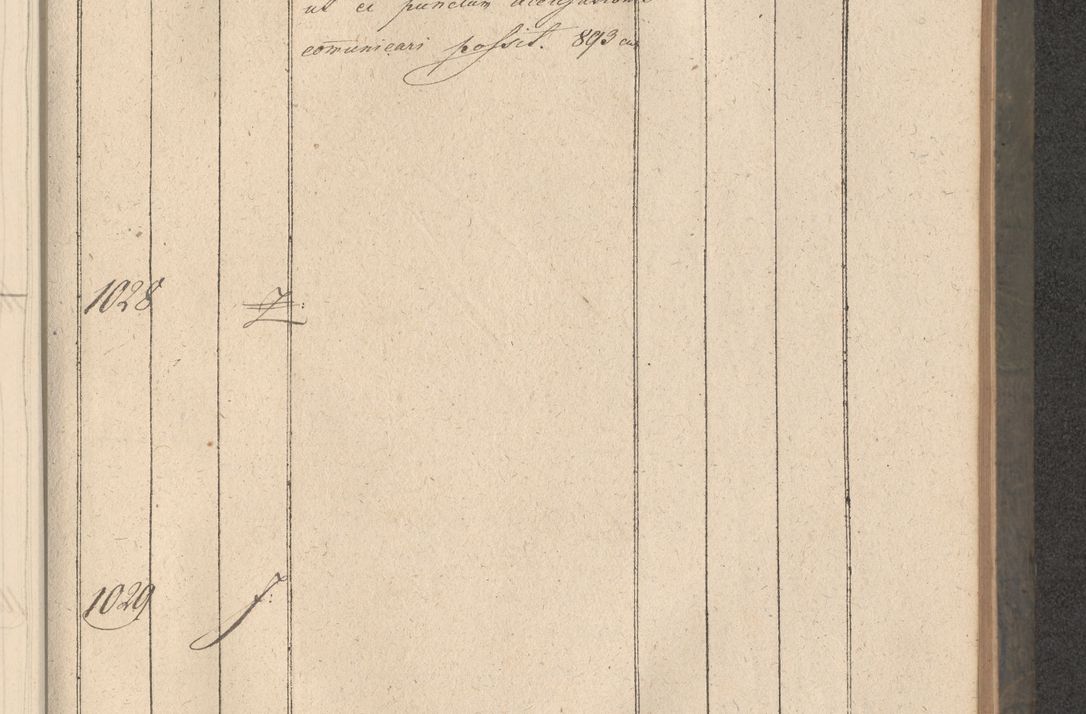 ut ei punctum
com̄unicari possit. 893
1028
1029 f: